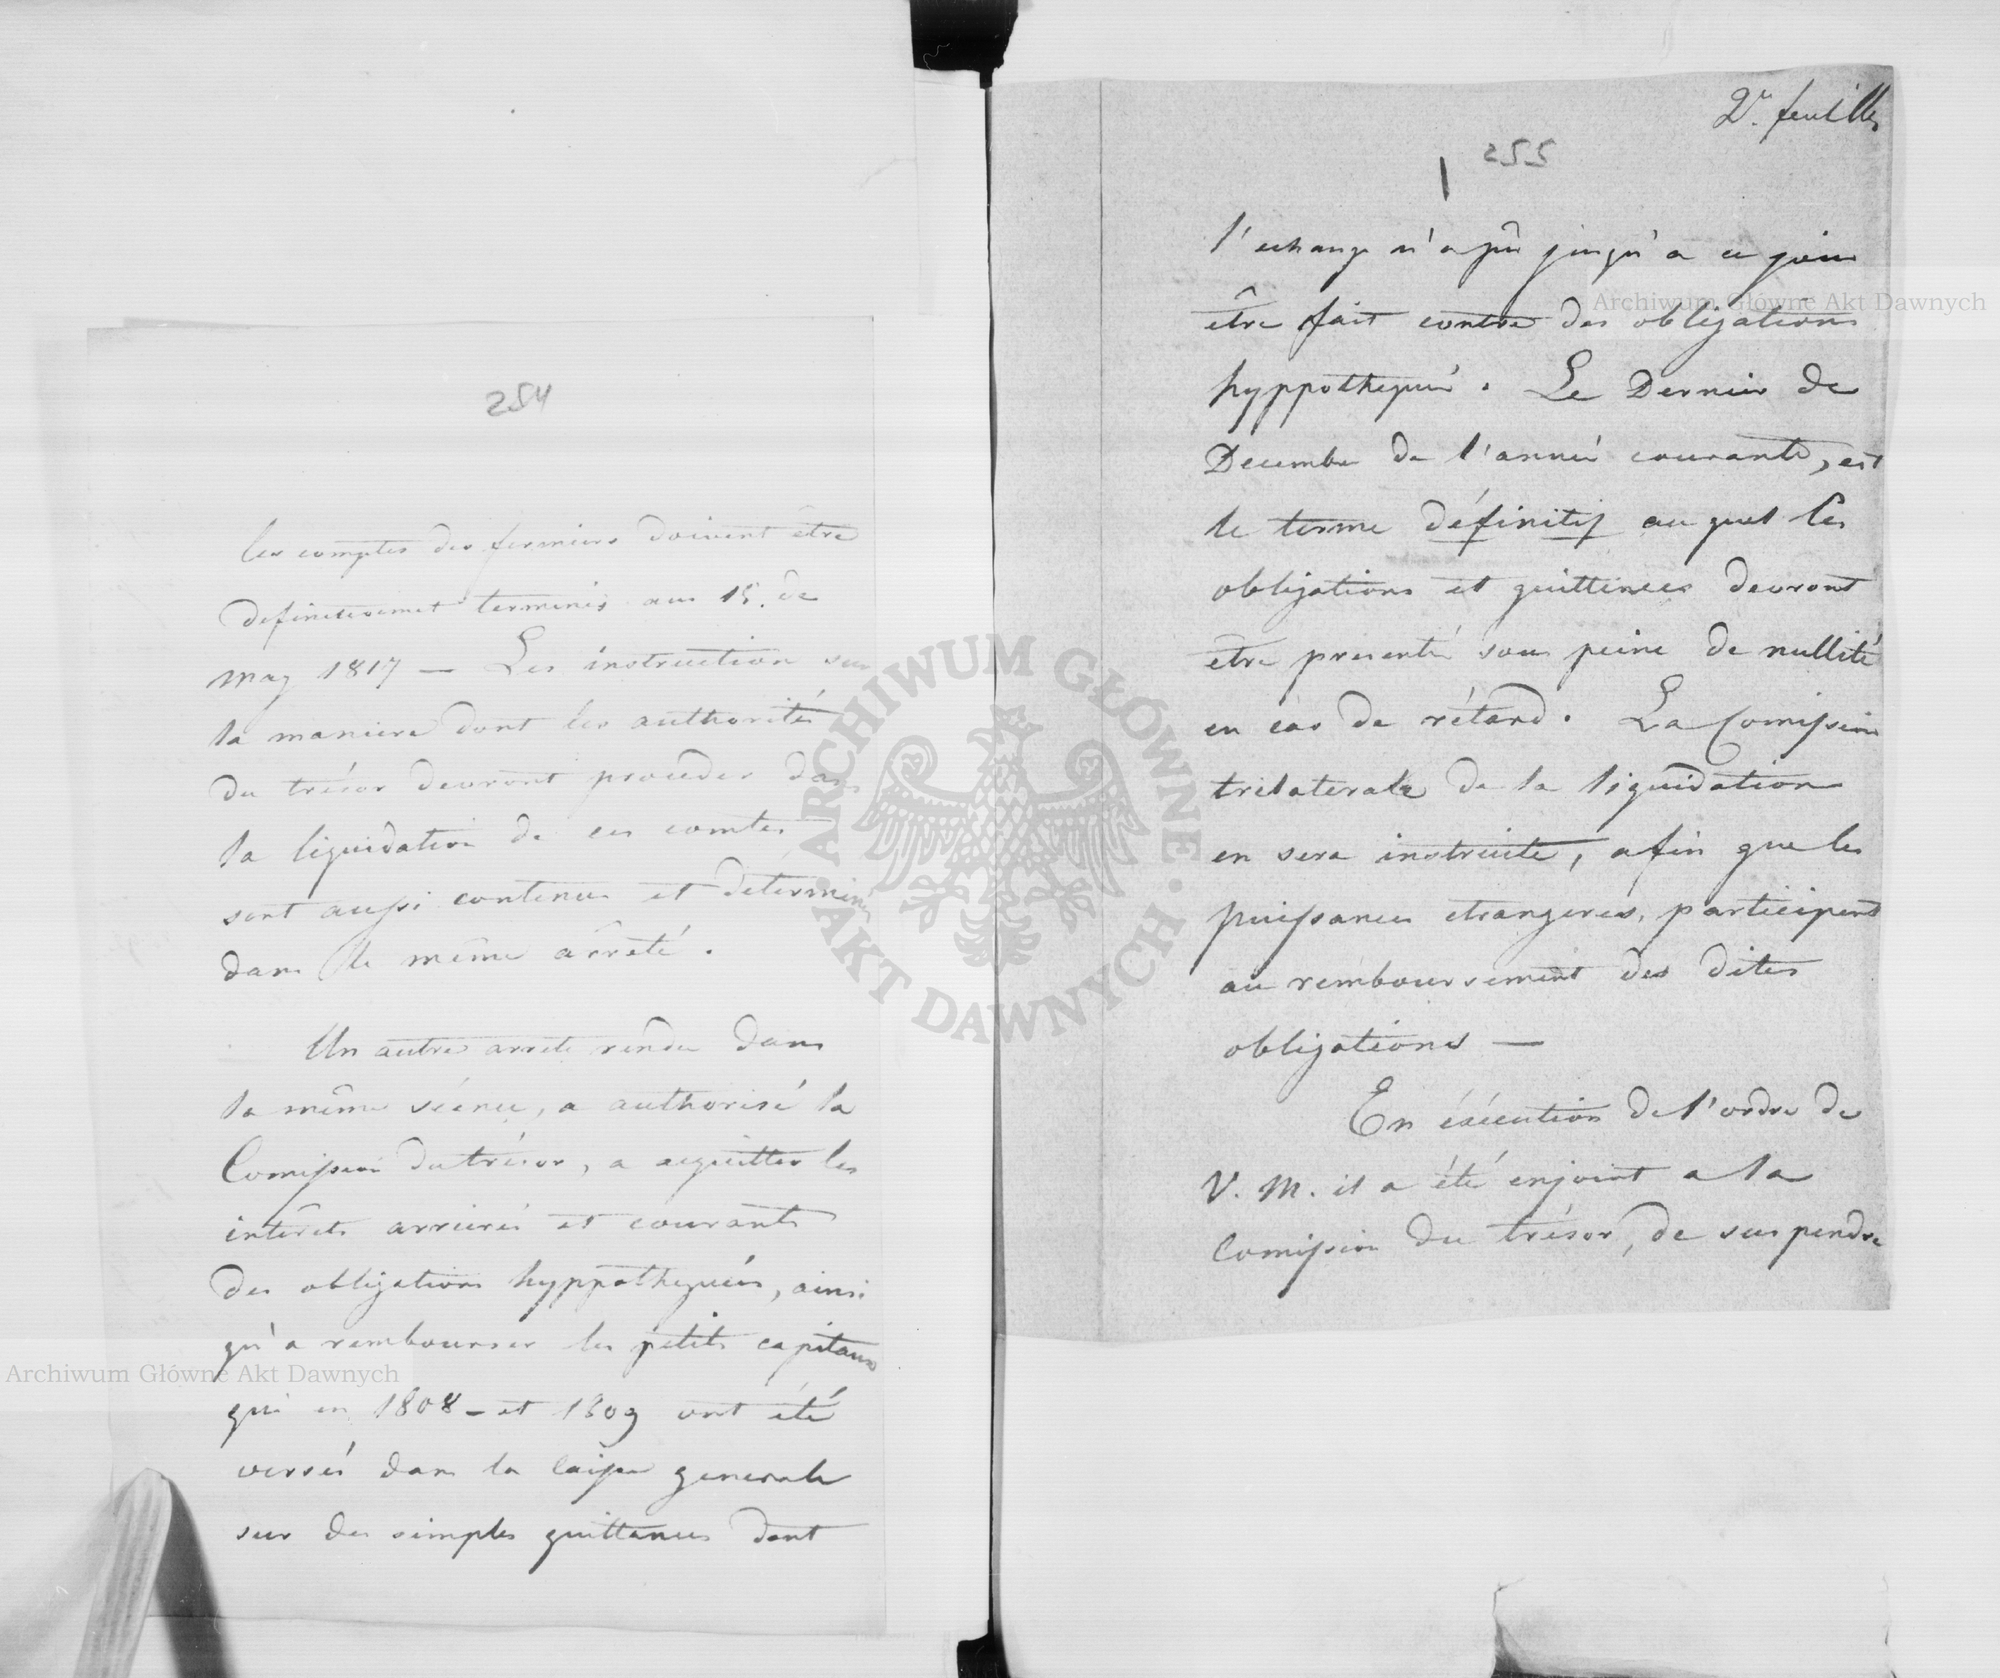 254
les comptes des fermiers doivent être
definitivemet terminés au 15. de
May 1817 — Les instruction sur
la maniere dont les authorités
du trésor devront proceder dans
la liquidation de ces comtes
sont aussi contenus et déterminés
dans le même arrêté.
Un autre arreté rendu dans
la même séence, a authorisé la
Comission du trésor, a acquitter les
intérêts arrierés et courants
des obligations hyppothequées, ainsi
qu'a rembourser les petits capitaux
qui en 1808 - et 1809 ont été
versés dans la caisse generale
sur des simples quittances dont
2e. feuille
255
l'echange n'a pû jusqu'a ce jour
être fait contre des obligations
hyppothequés. Le Dernier de
Decembre de l'année courante, est
le terme définitif au quel les
obligations et quittences devront
être presentés sous peine de nullité
en cas de rétard. La Comission
trilaterale de la liquidation
en sera instruite, afin que les
puissances etrangeres, participent
au remboursement des dites
obligations —
En éxécution de l'ordre de
V. M. il a été enjoint a la
Comission du trésor, de suspendre
Archiwum Główne Akt Dawnych
Archiwum Główne Akt Dawnych
ARCHIWUM GŁÓWNE
AKT DAWNYCH